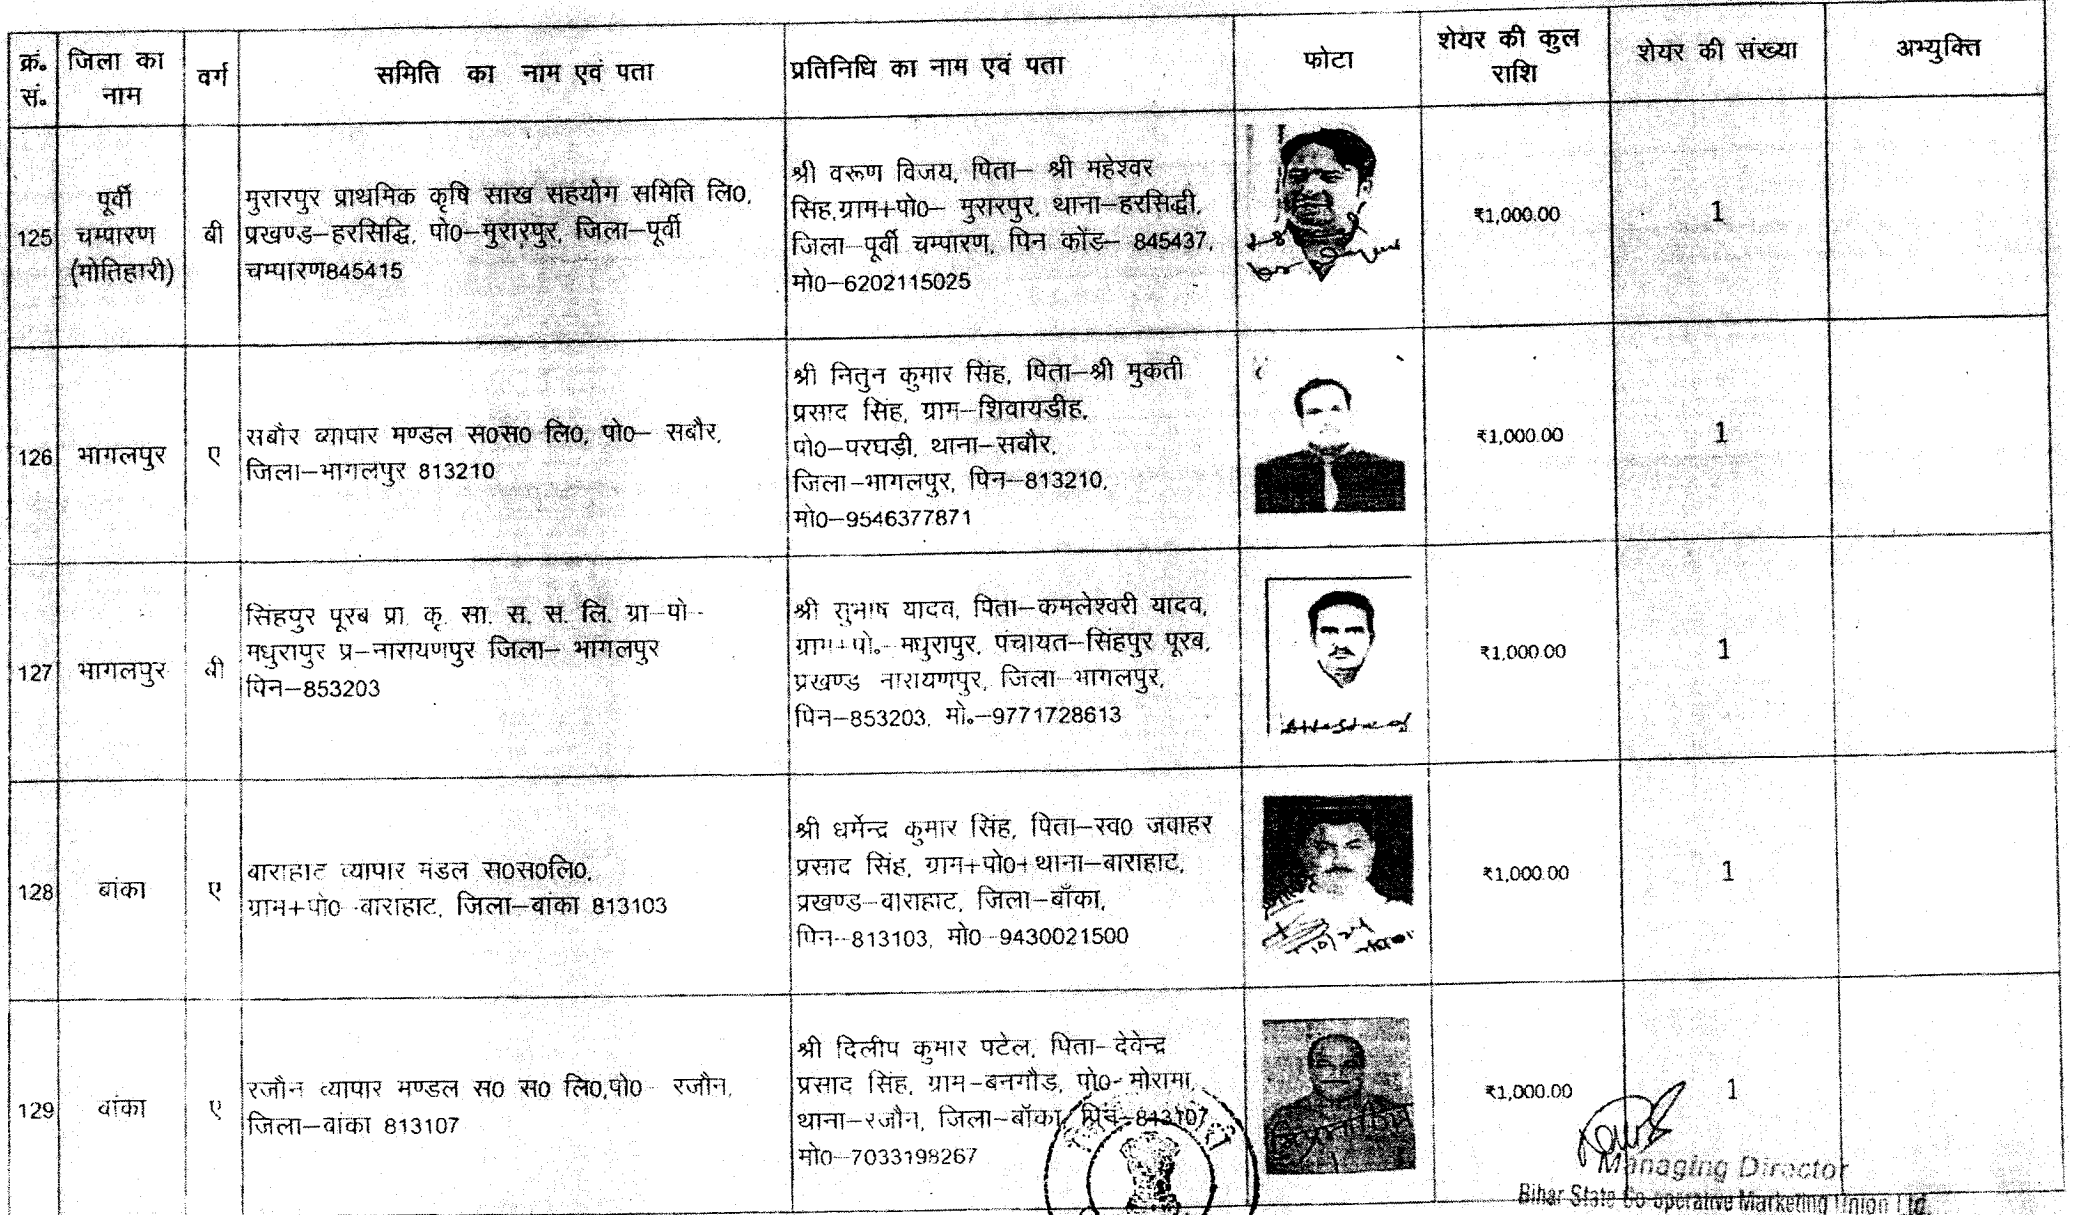 क्रं. सं. जिला का नाम वर्ग समिति का नाम एवं पता प्रतिनिधि का नाम एवं पता फोटा शेयर की कुल राशि शेयर की संख्या अभ्युक्ति
125
पूर्वी
चम्पारण
(मोतिहारी)
बी
मुरारपुर प्राथमिक कृषि साख सहयोग समिति लि0,
प्रखण्ड–हरसिद्धि, पो0–मुरारपुर, जिला–पूर्वी
चम्पारण845415
श्री वरूण विजय, पिता– श्री महेश्वर
सिंह,ग्राम+पो0– मुरारपुर, थाना–हरसिद्धी,
जिला–पूर्वी चम्पारण, पिन कोड– 845437,
मो0–6202115025
₹1,000.00
1
126
भागलपुर
ए
सबौर व्यापार मण्डल स0स0 लि0, पो0– सबौर,
जिला–भागलपुर 813210
श्री नितुन कुमार सिंह, पिता–श्री मुकती
प्रसाद सिंह, ग्राम–शिवायडीह,
पो0–परघड़ी, थाना–सबौर,
जिला–भागलपुर, पिन–813210,
मो0–9546377871
₹1,000.00
1
127
भागलपुर
बी
सिंहपुर पूरब प्रा. कृ. सा. स. स. लि. ग्रा–पो–
मधुरापुर प्र–नारायणपुर जिला– भागलपुर
पिन–853203
श्री सुभाष यादव, पिता–कमलेश्वरी यादव,
ग्राम+पो.– मधुरापुर, पंचायत–सिंहपुर पूरब,
प्रखण्ड नारायणपुर, जिला–भागलपुर,
पिन–853203, मो.–9771728613
₹1,000.00
1
128
बांका
ए
बाराहाट व्यापार मंडल स0स0लि0,
ग्राम+पो0–बाराहाट, जिला–बांका 813103
श्री धर्मेन्द्र कुमार सिंह, पिता–स्व0 जवाहर
प्रसाद सिंह, ग्राम+पो0+थाना–बाराहाट,
प्रखण्ड–वाराहाट, जिला–बाँका,
पिन–813103, मो0–9430021500
₹1,000.00
1
129
बांका
ए
रजौन व्यापार मण्डल स0 स0 लि0,पो0– रजौन,
जिला–बांका 813107
श्री दिलीप कुमार पटेल, पिता–देवेन्द्र
प्रसाद सिंह, ग्राम–बनगौड़, पो0–मोरामा,
थाना–रजौन, जिला–बॉका, पिन–813107,
मो0–7033198267
₹1,000.00
1
Managing Director
Bihar State Co-operative Marketing Union Ltd.